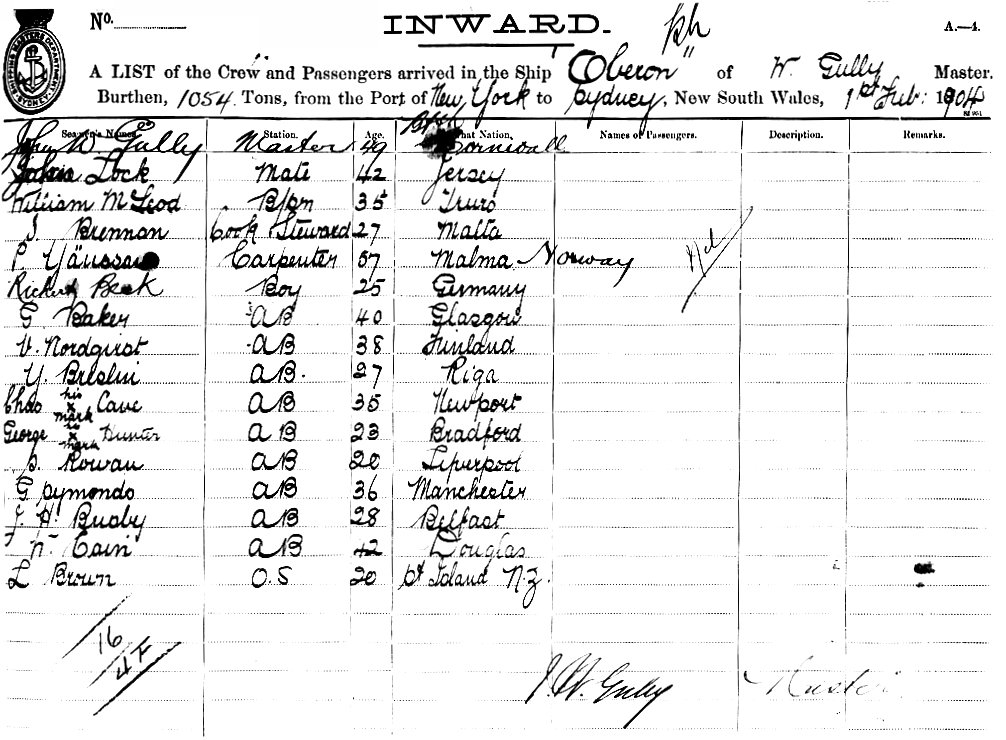 No.
INWARD.
A.—4.
SHIPPING MASTERS DEPARTMENT SYDNEY
A LIST of the Crew and Passengers arrived in the Ship "Oberon" of W. Gully Master.
Burthen, 1054 Tons, from the Port of New York to Sydney, New South Wales, 1st Feb: 1904
Seamen's Names. Station. Age. Of what Nation. Names of Passengers. Description. Remarks.
John W. Gully Master 49 Cornwall
John Lock Mate 42 Jersey
William McLeod B/sn 35 Truro
J Brennan Cook Steward 27 Malta
P Carpenter 57 Malma Norway
Nil
Boy 25 Germany
G Baker AB 40 Glasgow
V. Nordqvist AB 38 Finland
Y. Breslin AB. 27 Riga
Chas his x mark Cave AB 35 Newport
George his x mark Hunter AB 23 Bradford
S. Rowan AB 20 Liverpool
G Symonds AB 36 Manchester
J. H. Busby AB 28 Belfast
W. Cain AB 42 Douglas
L Brown O.S 20 St Island N.Z.
16
4 F
J. W. Gully Master